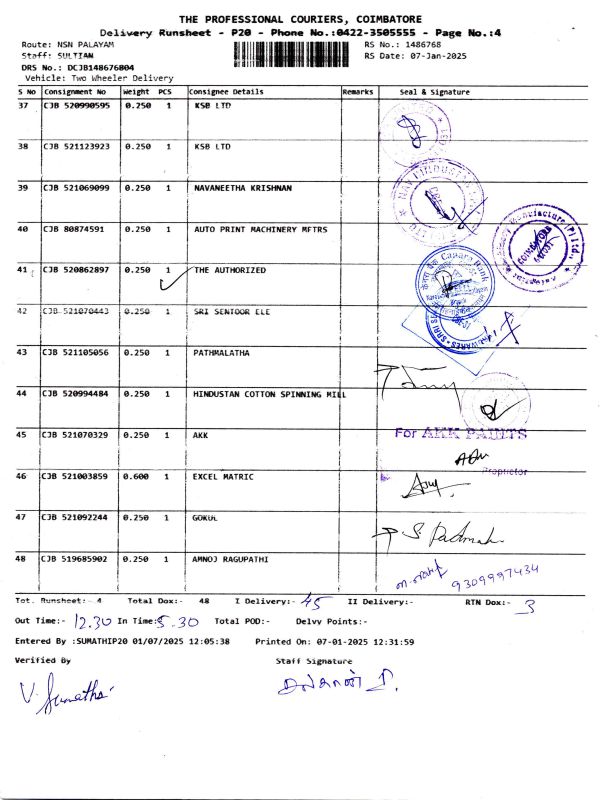 THE PROFESSIONAL COURIERS, COIMBATORE
Delivery Runsheet - P20 - Phone No.:0422-3505555 - Page No.:4
Route: NSN PALAYAM RS No.: 1486768
Staff: SULTIAN RS Date: 07-Jan-2025
DRS No.: DCJB148676804
Vehicle: Two Wheeler Delivery
S No Consignment No Weight PCS Consignee Details Remarks Seal & Signature
37 CJB 520990595 0.250 1 KSB LTD
38 CJB 521123923 0.250 1 KSB LTD
39 CJB 521069099 0.250 1 NAVANEETHA KRISHNAN
40 CJB 80874591 0.250 1 AUTO PRINT MACHINERY MFTRS
41 CJB 520862897 0.250 1 THE AUTHORIZED
Canara Bank
42 CJB 521070443 0.250 1 SRI SENTOOR ELE
43 CJB 521105056 0.250 1 PATHMALATHA
44 CJB 520994484 0.250 1 HINDUSTAN COTTON SPINNING MILL
45 CJB 521070329 0.250 1 AKK
For AKK PAINTS
Proprietor
46 CJB 521003859 0.600 1 EXCEL MATRIC
47 CJB 521092244 0.250 1 GOKUL
48 CJB 519685902 0.250 1 AMNOJ RAGUPATHI
9309997434
Tot. Runsheet:- 4 Total Dox:- 48 I Delivery:- 45 II Delivery:- RTN Dox:- 3
Out Time:- 12.30 In Time:5.30 Total POD:- Delvy Points:-
Entered By :SUMATHIP20 01/07/2025 12:05:38 Printed On: 07-01-2025 12:31:59
Verified By Staff Signature
V. Sumathi